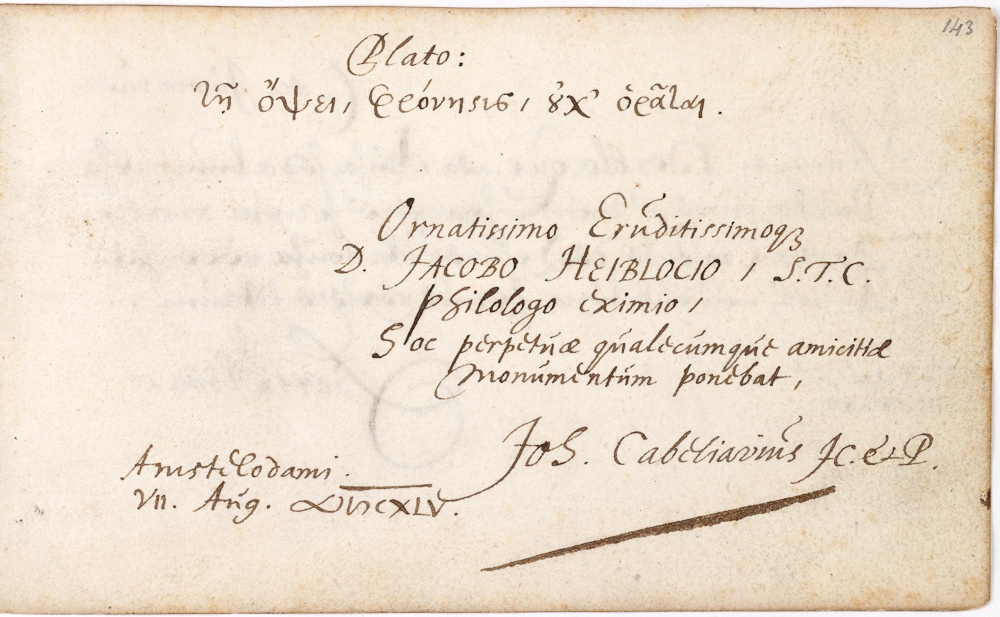 143
Plato:
τῇ ὄψει, φρόνησις, ȣχ' ὁρᾶται.
Ornatissimo Eruditissimoqȝ
D. JACOBO HEIBLOCIO, S.T.C.
philologo eximio,
hoc perpetuæ qualecumque amicitiæ
monumentum ponebat,
Joh. Cabeliavius JC. & P.
Amstelodami.
VII. Aug.